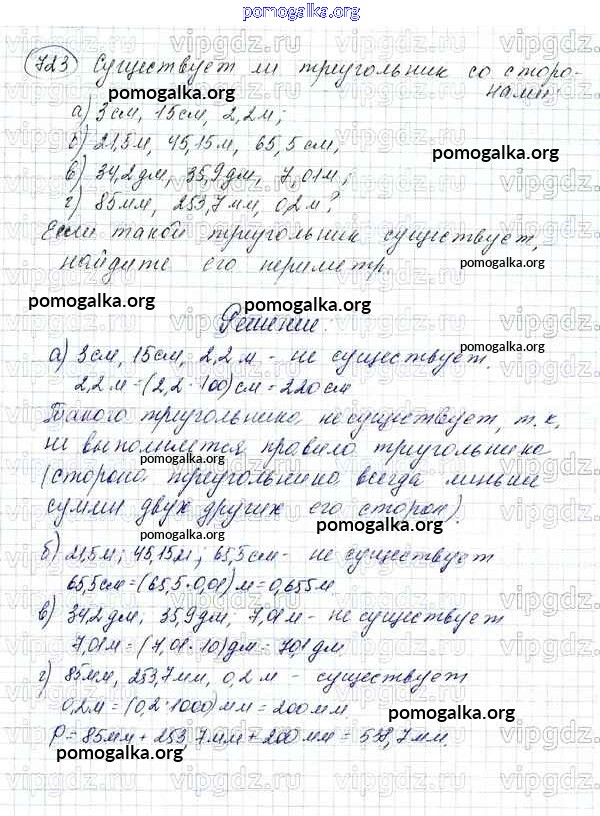 pomogalka.org
723 Существует ли треугольник со сторо-
нами:
а) 3см, 15см, 2,2м;
б) 21,5м, 45,15м, 65,5см,
pomogalka.org
в) 34,2дм, 35,9дм, 7,01м;
г) 85мм, 253,7мм, 0,2м?
Если такой треугольник существует,
найдите его периметр.
pomogalka.org
pomogalka.org
pomogalka.org
Решение.
а) 3см, 15см, 2,2м - не существует.
pomogalka.org
2,2м = (2,2·100)см = 220см
Такого треугольника не существует, т.к.
не выполняется правило треугольника
pomogalka.org
(сторона треугольника всегда меньше
суммы двух других его сторон).
pomogalka.org
б) 21,5м; 45,15м; 65,5см - не существует
65,5см = (65,5·0,01)м = 0,655м
в) 34,2дм, 35,9дм, 7,01м - не существует
7,01м = (7,01·10)дм = 70,1дм
г) 85мм, 253,7мм, 0,2м - существует
0,2м = (0,2·1000)мм = 200мм.
pomogalka.org
P = 85мм + 253,7мм + 200мм = 538,7мм.
pomogalka.org